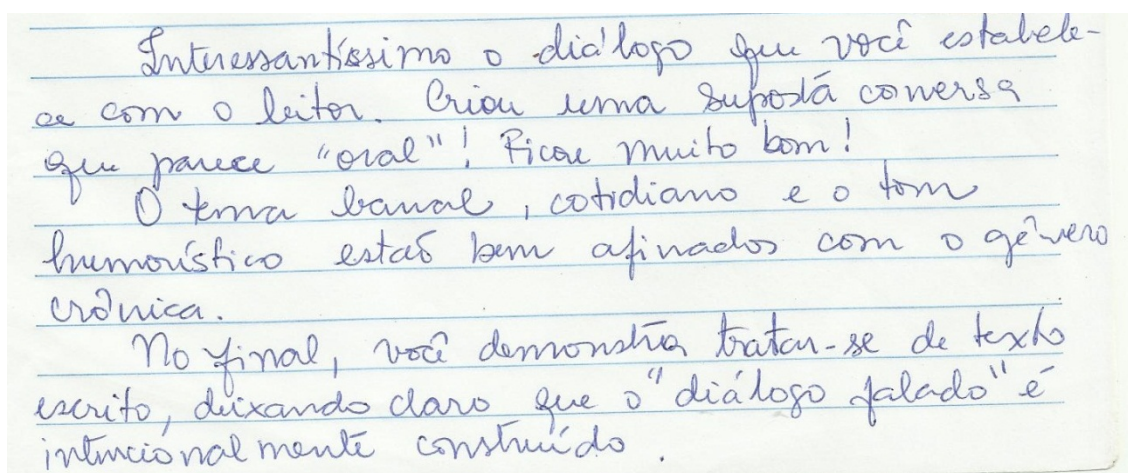 Interessantíssimo o diálogo que você estabele-
ce com o leitor. Criou uma suposta conversa
que parece "oral"! Ficou muito bom!
O tema banal, cotidiano e o tom
humorístico estão bem afinados com o gênero
crônica.
No final, você demonstra tratar-se de texto
escrito, deixando claro que o "diálogo falado" é
intencionalmente construído.